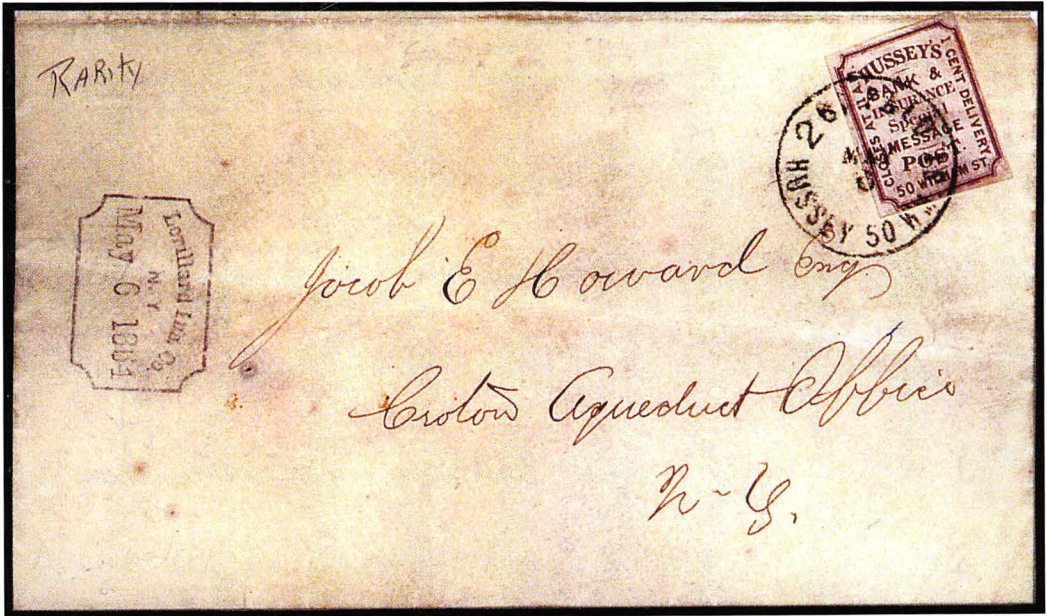 RARITY
HUSSEY'S
BANK &
INSURANCE
Special
MESSAGE
POST
50 WILLIAM ST.
CLOSES AT
1 CENT DELIVERY
HUSSEY 50
Lorillard Insr Co
N.Y.
May 6 1864
Jacob E Howard Esq
Croton Aqueduct Office
N-Y.